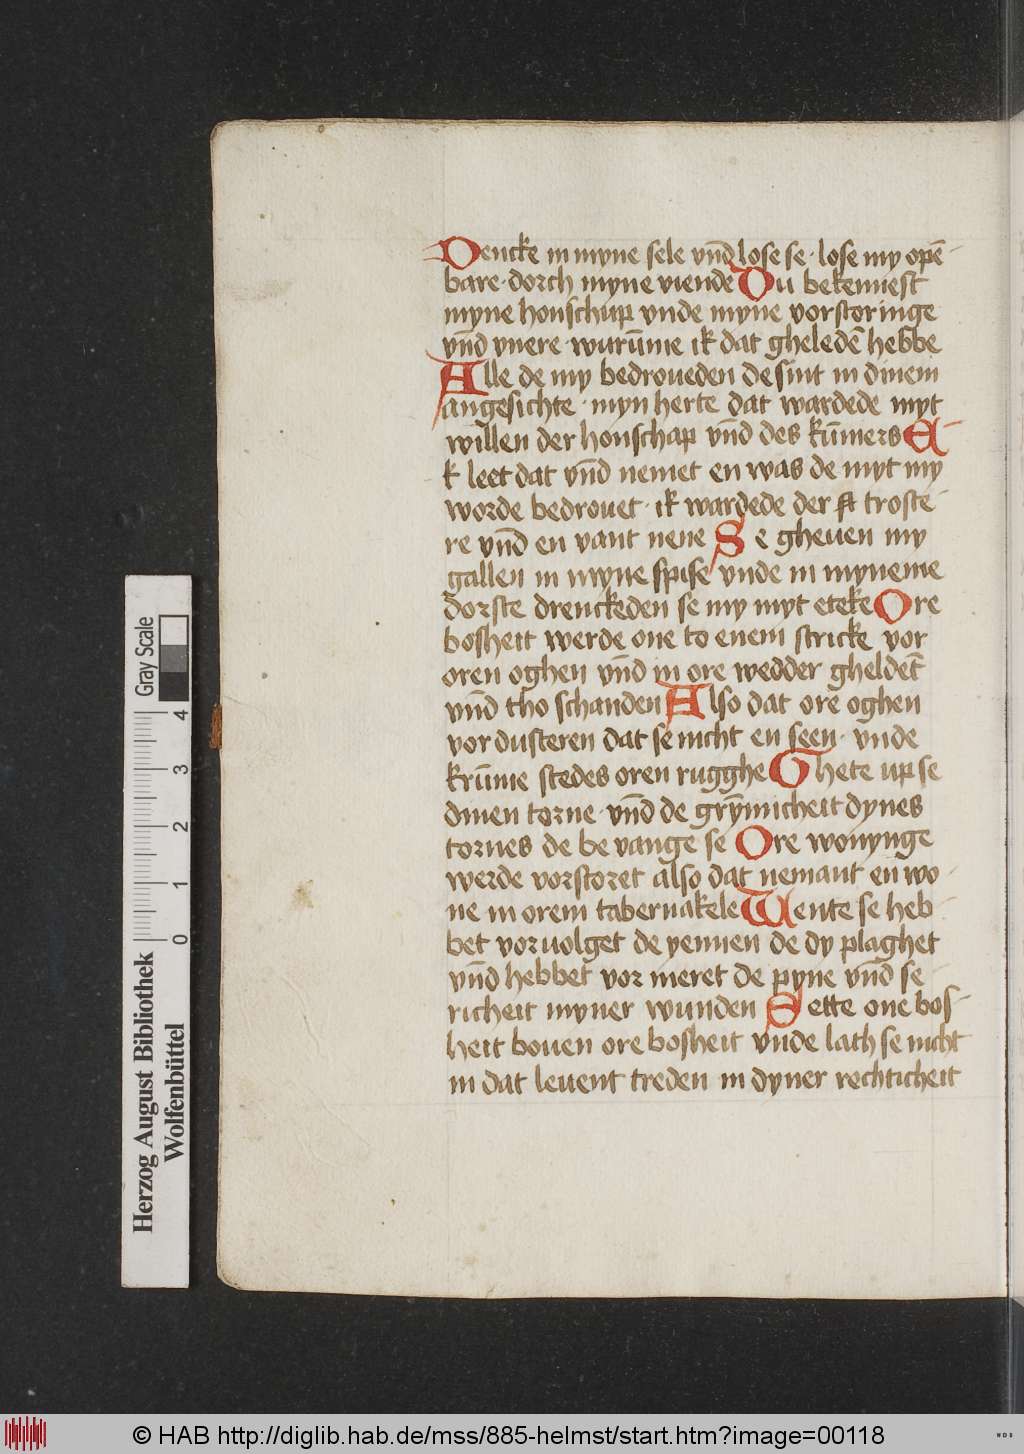 Dencke in myne sele vn̄d lose se · lose my opē-
bare · dorch myne viende Du bekennest
myne honschup vnde myne vorstoringe
vn̄d vnere · wurūme ik dat gheledē hebbe
Alle de my bedroueden de sint in dinem
angesichte · myn herte dat wardede myt
willen der honschap vn̄d des kūmers E-
k leet dat vn̄d nemet en was de myt my
worde bedrouet · ik wardede der st troste-
re vn̄d en vant nene Se gheuen my
gallen in myne spise vnde in myneme
dorste drenckeden se my myt eteke Ore
bosheit werde one to enem stricke vor
oren oghen vn̄d in ore wedder gheldēt
vn̄d tho schanden Also dat ore oghen
vor dusteren dat se nicht en seen · vnde
krūme stedes oren rugghe Ghete up se
dinen torne · vn̄d de grȳmicheit dynes
tornes de be vange se Ore wonynge
werde vorstoret also dat nemant en wo-
ne in orem tabernakele Wente se heb-
bet voruolget de yennen de dy plaghet
vn̄d hebbet vor meret de pyne vn̄d se-
richeit myner wunden Sette one bos-
heit bouen ore bosheit vnde lath se nicht
in dat leuent treden in dyner rechticheit
Herzog August Bibliothek
Wolfenbüttel
Gray Scale
0 1 2 3 4
© HAB http://diglib.hab.de/mss/885-helmst/start.htm?image=00118